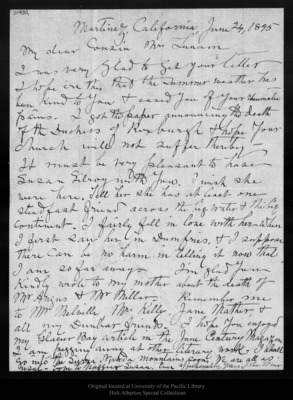 Martinez, California, June 24, 1895
My dear Cousin Mrs Lunam
I was very glad to get your letter
I hope ere this that the summer weather has
been kind to you & eased you of your rheumatic
pains. I got the paper announcing the death
of the Duchess of Roxburgh & hope your
Church will not suffer thereby—
It must be very pleasant to have
Susan Gilroy with you. I wish she
were here. Tell her she has at least one
steadfast friend across the big water & this big
continent. I fairly fell in love with her when
I first saw her in Dumfries, & I suppose
there can be no harm in telling it now that
I am so far away. I'm glad you
kindly wrote to my mother about the death of
Mr Angus & Mr Millar. Remember me
to Mr Melville Mrs Kelly Jane Mather &
all my Dunbar friends. I hope you enjoyed
my Glacier Bay article in the June Century Magazine
I am pegging away at other literary work. I shall
go into the Sierra Nevada mountains soon. We are all as
usual.
Original located at University of the Pacific Library
Holt-Atherton Special Collections